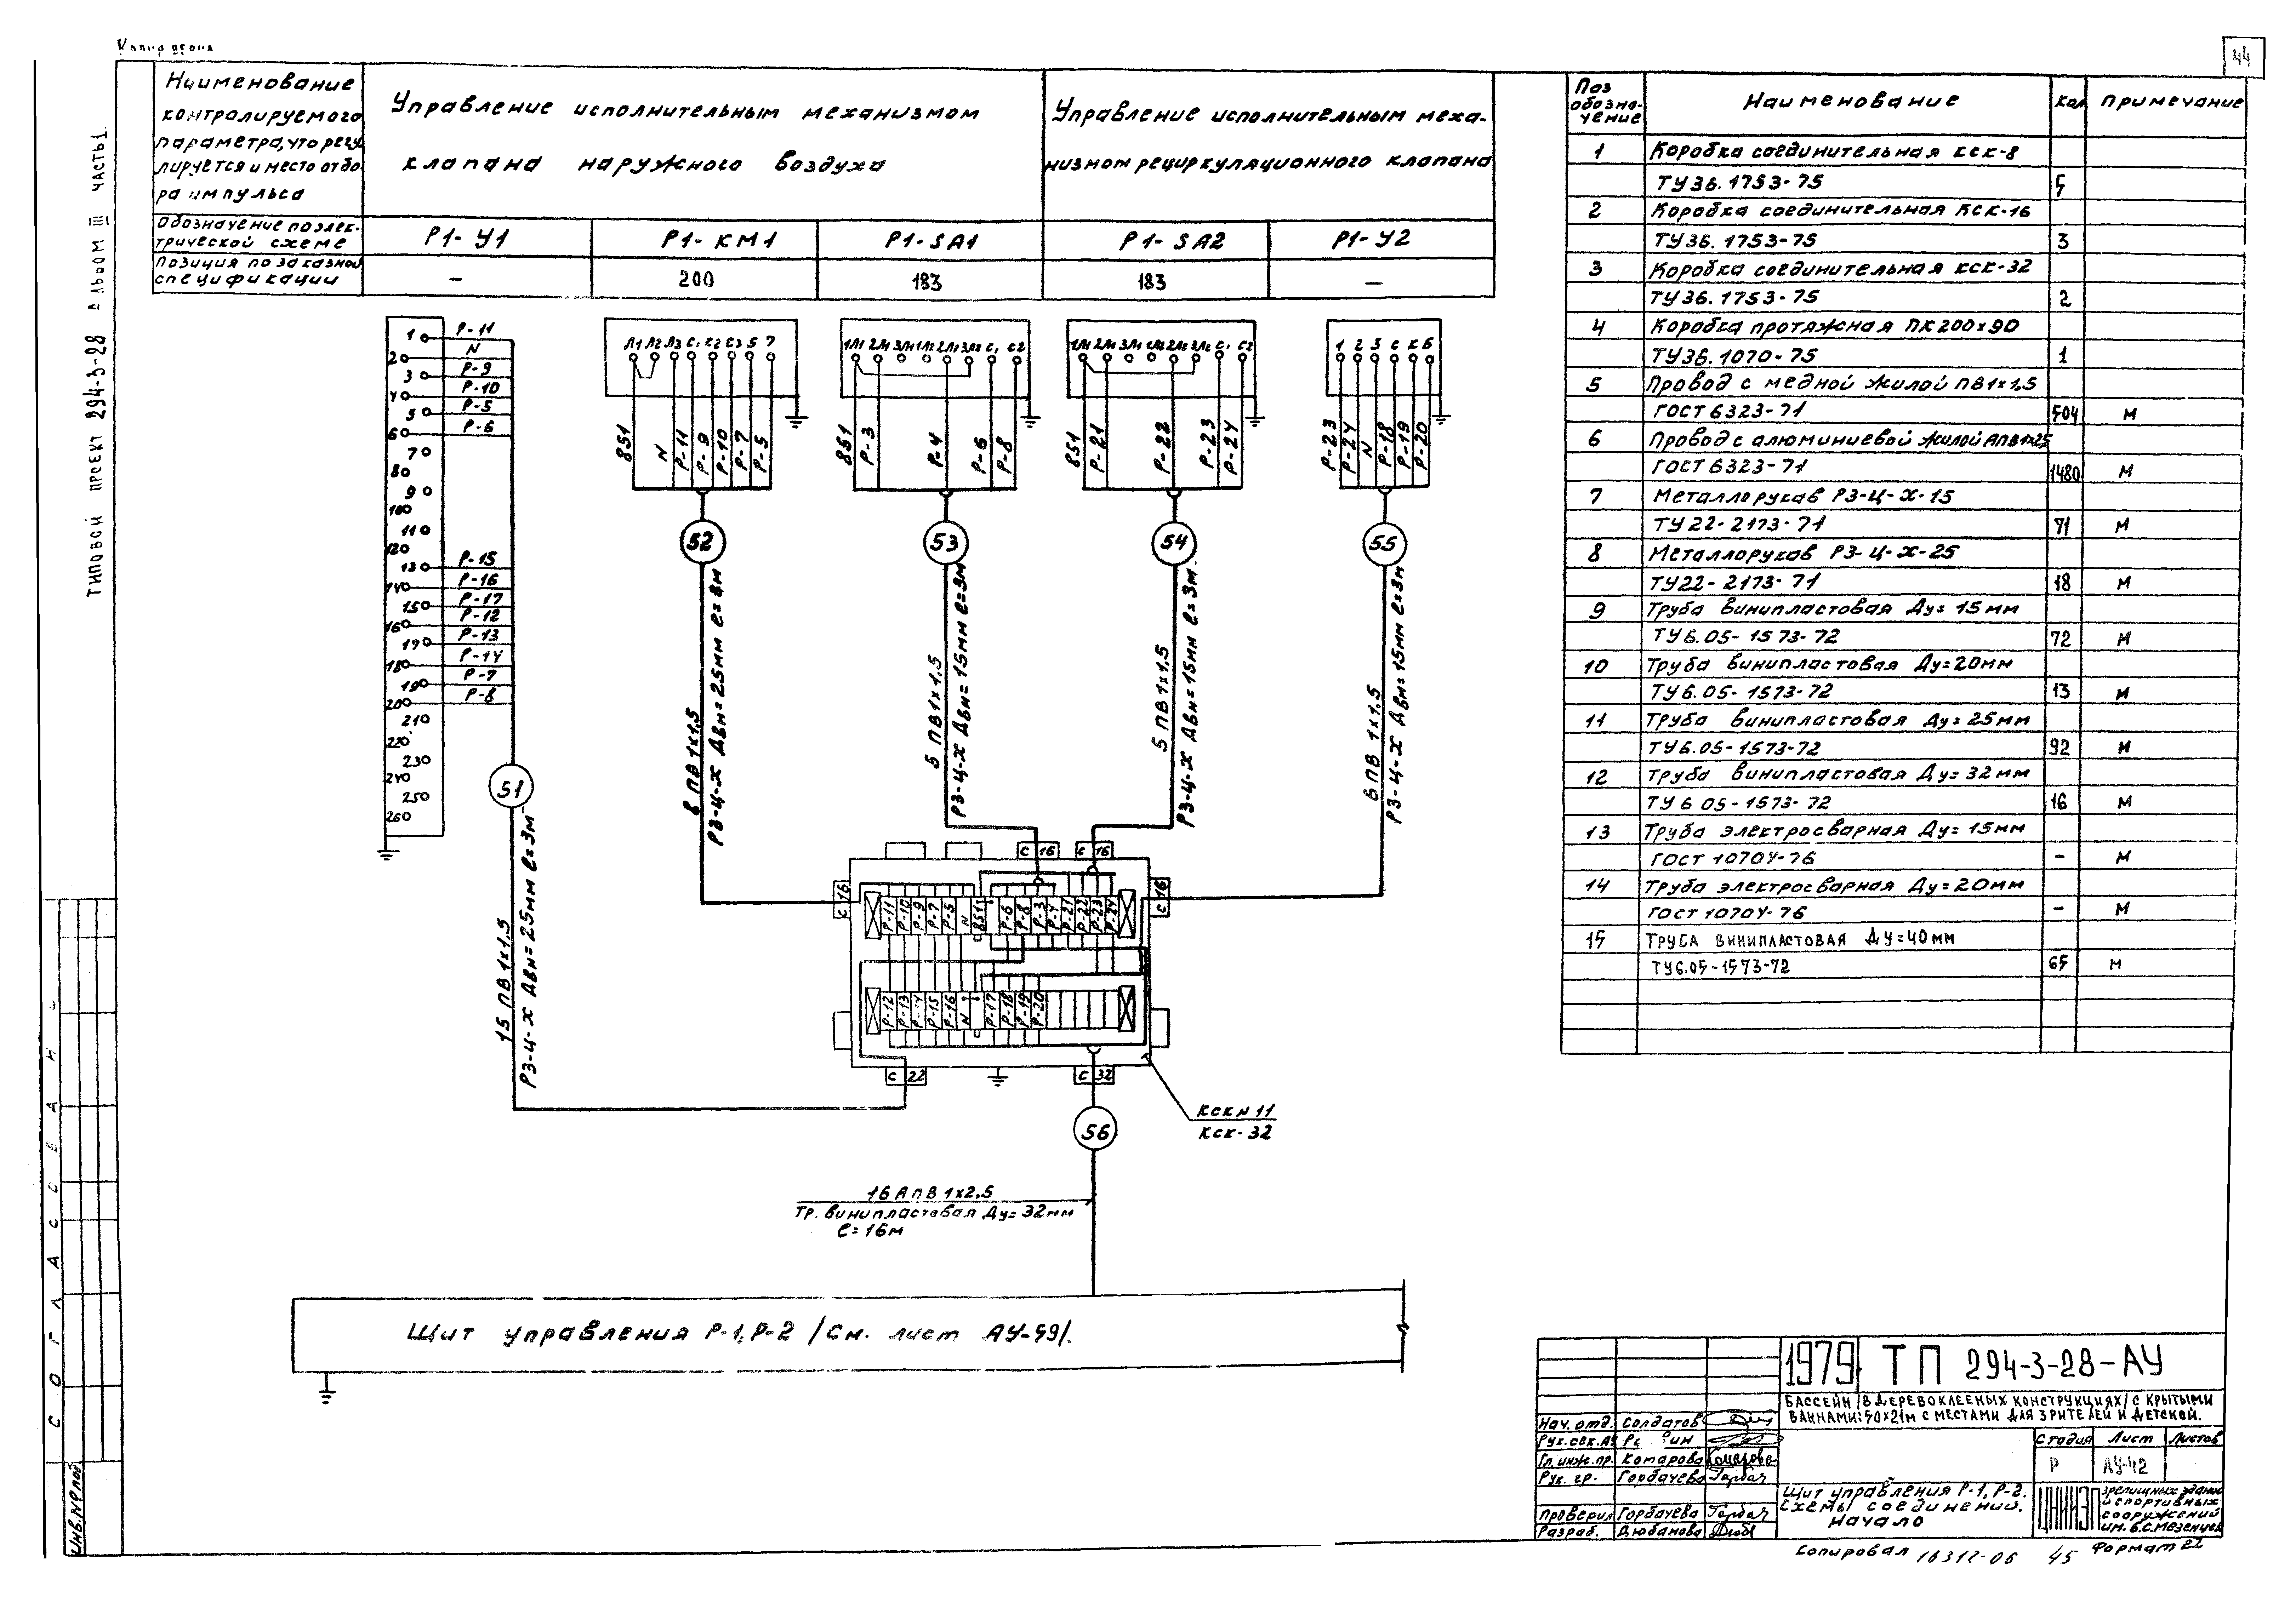 Копия верна
44
ТИПОВОЙ ПРОЕКТ 294-3-28 АЛЬБОМ III ЧАСТЬ 1.
Наименование
контролируемого
параметра, что регу
лируется и место отбо-
ра импульса
Управление исполнительным механизмом
клапана наружного воздуха
Управление исполнительным меха-
низмом рециркуляционного клапана
Обозначение по элек-
трической схеме
Р1-У1
Р1-КМ1
Р1-SА1
Р1-SА2
Р1-У2
Позиция по заказной
спецификации
-
200
183
183
-
1 Р-11
2 N
3 Р-9
4 Р-10
5 Р-5
6 Р-6
7
8
9
10
11
12
13 Р-15
14 Р-16
15 Р-17
16 Р-12
17 Р-13
18 Р-14
19 Р-7
20 Р-8
21
22
23
24
25
26
Л1 Л2 Л3 С1 С2 С3 5 7
851 N Р-11 Р-9 Р-10 Р-7 Р-5
1Л1 2Л1 3Л1 1Л2 2Л2 3Л2 С1 С2
851 Р-3 Р-4 Р-6 Р-8
1Л1 2Л1 3Л1 1Л2 2Л2 3Л2 С1 С2
851 Р-21 Р-22 Р-23 Р-24
1 2 3 С К Б
Р-23 Р-24 N Р-18 Р-19 Р-20
51
52
53
54
55
15 ПВ 1х1,5
РЗ-Ц-Х Двн=25мм ℓ=3м
8 ПВ 1х1,5
РЗ-Ц-Х Двн=25мм
5 ПВ 1х1,5
РЗ-Ц-Х Двн=15мм ℓ=3м
5 ПВ 1х1,5
РЗ-Ц-Х Двн=15мм ℓ=3м
6 ПВ 1х1,5
РЗ-Ц-Х Двн=15мм ℓ=3м
С 16
С 16
С 16
С 16
Р-11 Р-10 Р-9 Р-7 Р-5 N 851 Р-6 Р-8 Р-3 Р-4 Р-21 Р-22 Р-23 Р-24
Р-12 Р-13 Р-14 Р-15 Р-16 N Р-17 Р-18 Р-19 Р-20
С 22
С 32
КСК N 11
КСК-32
56
16 АПВ 1х2,5
Тр. винипластовая Ду=32мм
ℓ=16м
Щит управления Р-1, Р-2 /См. лист АУ-49/.
Поз обозна-чение
Наименование
Кол
Примечание
1 Коробка соединительная КСК-8
ТУ36.1753-75 5
2 Коробка соединительная КСК-16
ТУ36.1753-75 3
3 Коробка соединительная КСК-32
ТУ36.1753-75 2
4 Коробка протяжная ПК 200х90
ТУ36.1070-75 1
5 Провод с медной жилой ПВ1х1,5
ГОСТ 6323-71 504 м
6 Провод с алюминиевой жилой АПВ1х2,5
ГОСТ 6323-71 1480 м
7 Металлорукав РЗ-Ц-Х-15
ТУ22-2173-71 71 м
8 Металлорукав РЗ-Ц-Х-25
ТУ22-2173-71 18 м
9 Труба винипластовая Ду=15мм
ТУ6.05-1573-72 72 м
10 Труба винипластовая Ду=20мм
ТУ6.05-1573-72 13 м
11 Труба винипластовая Ду=25мм
ТУ6.05-1573-72 92 м
12 Труба винипластовая Ду=32мм
ТУ6 05-1573-72 16 м
13 Труба электросварная Ду=15мм
ГОСТ 10704-76 - м
14 Труба электросварная Ду=20мм
ГОСТ 10704-76 - м
15 ТРУБА ВИНИПЛАСТОВАЯ ДУ=40мм
ТУ6.05-1573-72 65 м
СОГЛАСОВАНО
ИНВ.№ ПОД
1979 ТП 294-3-28-АУ
БАССЕЙН /В ДЕРЕВОКЛЕЕНЫХ КОНСТРУКЦИЯХ/ С КРЫТЫМИ
ВАННАМИ: 50х21м С МЕСТАМИ ДЛЯ ЗРИТЕЛЕЙ И ДЕТСКОЙ.
Нач. отд. Солдатов
Рук. сек. АУ
Гл. инж. пр. Комарова
Рук. гр. Горбачева
Проверил Горбачева
Разраб. Дюбанова
Стадия Лист Листов
Р АУ-42
Щит управления Р-1, Р-2.
Схемы соединений.
Начало
ЦНИИЭП
зрелищных зданий
и спортивных
сооружений
им. Б.С. Мезенцев
Копировал 16312-06 45 Формат 22